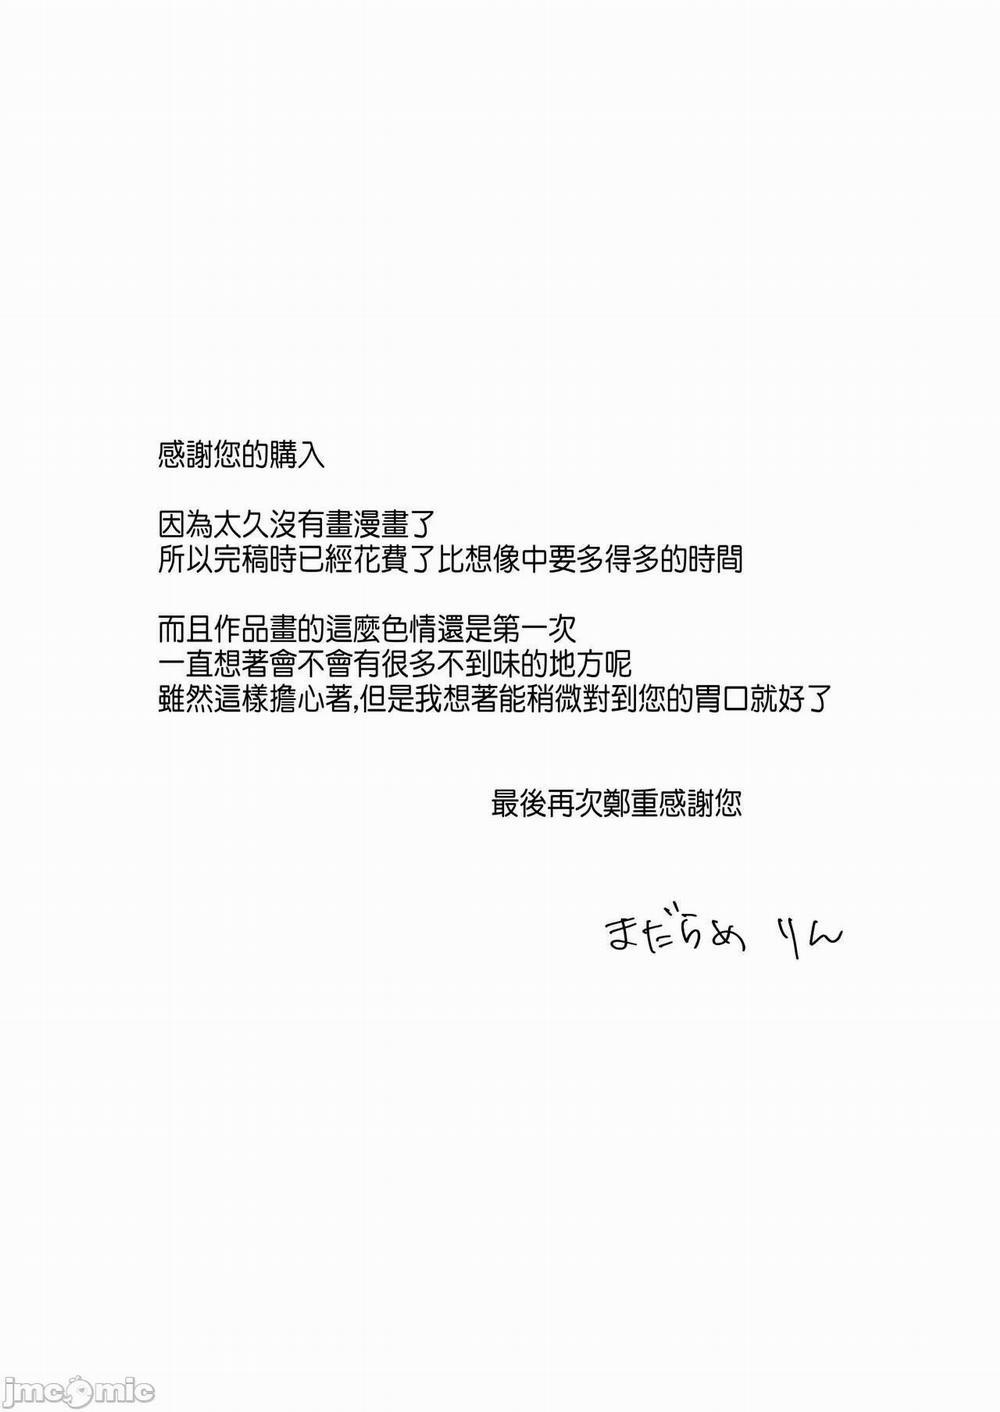 感謝您的購入
因為太久沒有畫漫畫了
所以完稿時已經花費了比想像中要多得多的時間
而且作品畫的這麼色情還是第一次
一直想著會不會有很多不到味的地方呢
雖然這樣擔心著,但是我想著能稍微對到您的胃口就好了
最後再次鄭重感謝您
まだらめ りん
jmcomic